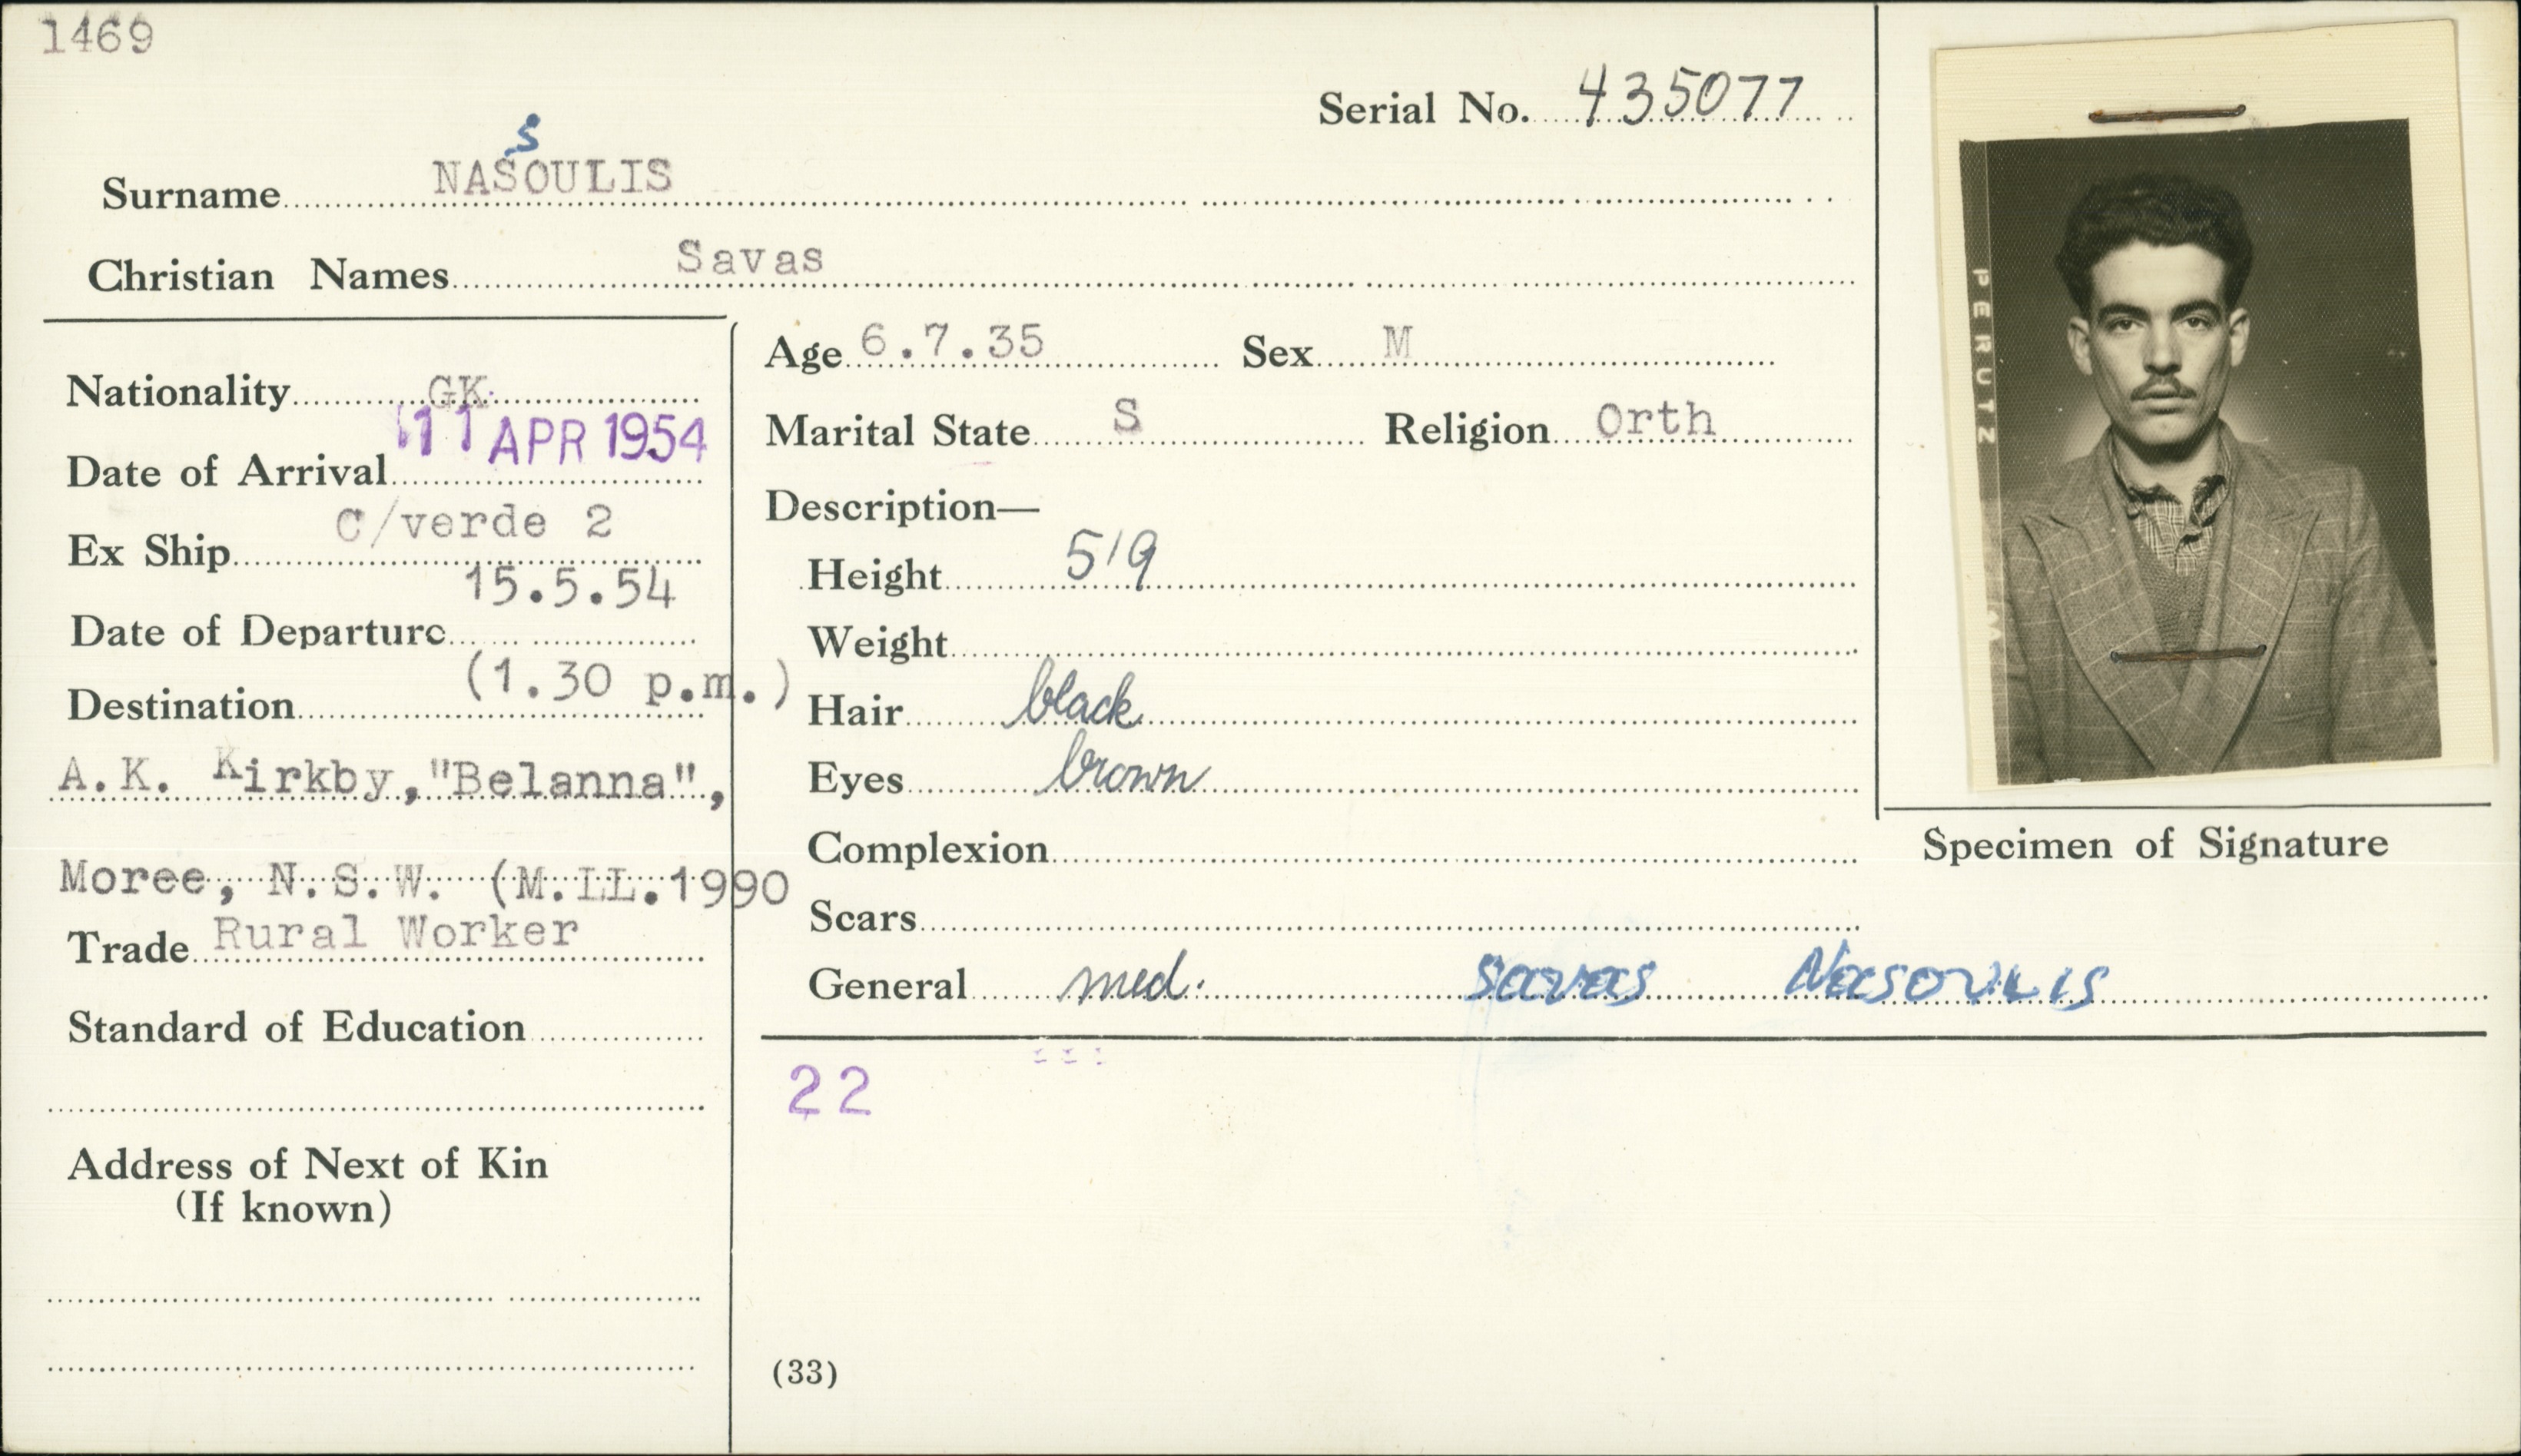 1469
Serial No. 435077
s
Surname NASOULIS
Christian Names Savas
Nationality GK
Date of Arrival 11 APR 1954
Ex Ship C/verde 2
Date of Departure 15.5.54
Destination (1.30 p.m.)
A.K. Kirkby, "Belanna",
Moree, N.S.W. (M.LL.1990
Trade Rural Worker
Standard of Education
Address of Next of Kin
(If known)
Age 6.7.35 Sex M
Marital State S Religion Orth
Description—
Height 5'9
Weight
Hair black
Eyes brown
Complexion
Scars
General med.
22
(33)
PERUTZ
Specimen of Signature
Savas Nasoulis